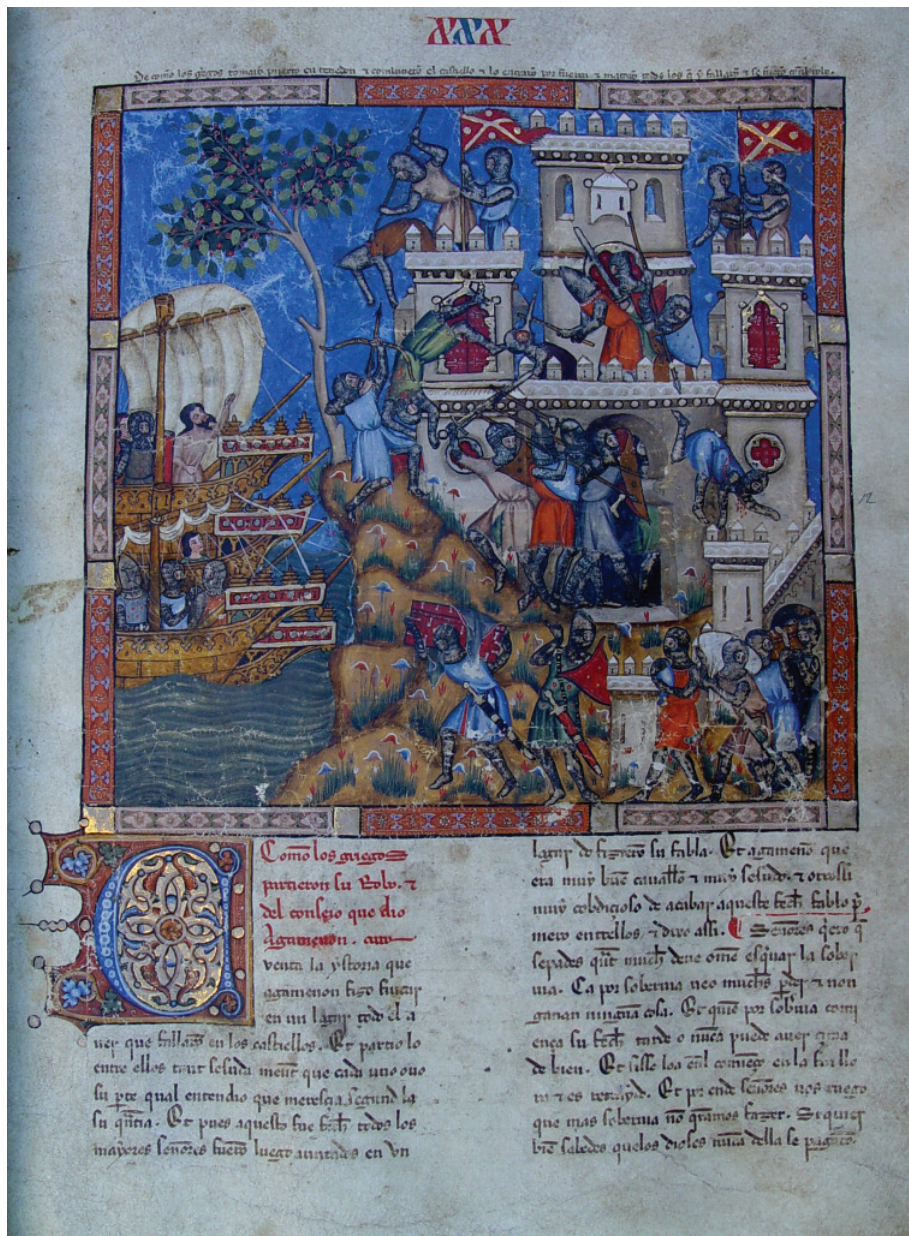 XXX
De como los griegos tomaron puerto en tenedon & conbatieron el castiello & lo entraron por fuerça & mataron todos los que y fallaron & se
Como los griegos
partieron su Robo. &
del conseio que dio
Agamenon.
Cuenta la ystoria que
agamenon fizo fuerar
en un lugar todo el a
uer que fallarõ en los castiellos. Et partio lo
entre ellos tant sesuda ment que cada uno ouo
su pte qual entendio que meresçia segund la
su quãtia. Et pues aquesto fue fecho todos los
mayores señores fuerõ luego aiuntados en vn
lugar do fizierõ su fabla. Et agamenõ que
era muy buẽ cauallo & muy sesudo. & otrossi
muy cobdiçioso de acabar aqueste fecho fablo pⁱ
mero entrellos. & dixo assi. Señores qero q̃
sepades q̃ mucho deue omẽ esq̃uar la sober
uia. Ca por soberuia ueo muchos pder & non
ganan ninguna cosa. Et quiẽ por sobuia comi
ença su fecho tarde o nũca puede auer çima
de bien. Et
& es Et por ende señores uos ruego
que mas soberuia nõ q̃ramos fazer. Siquier
biẽ sabedes quelos dioses nũca della se pagarõ.